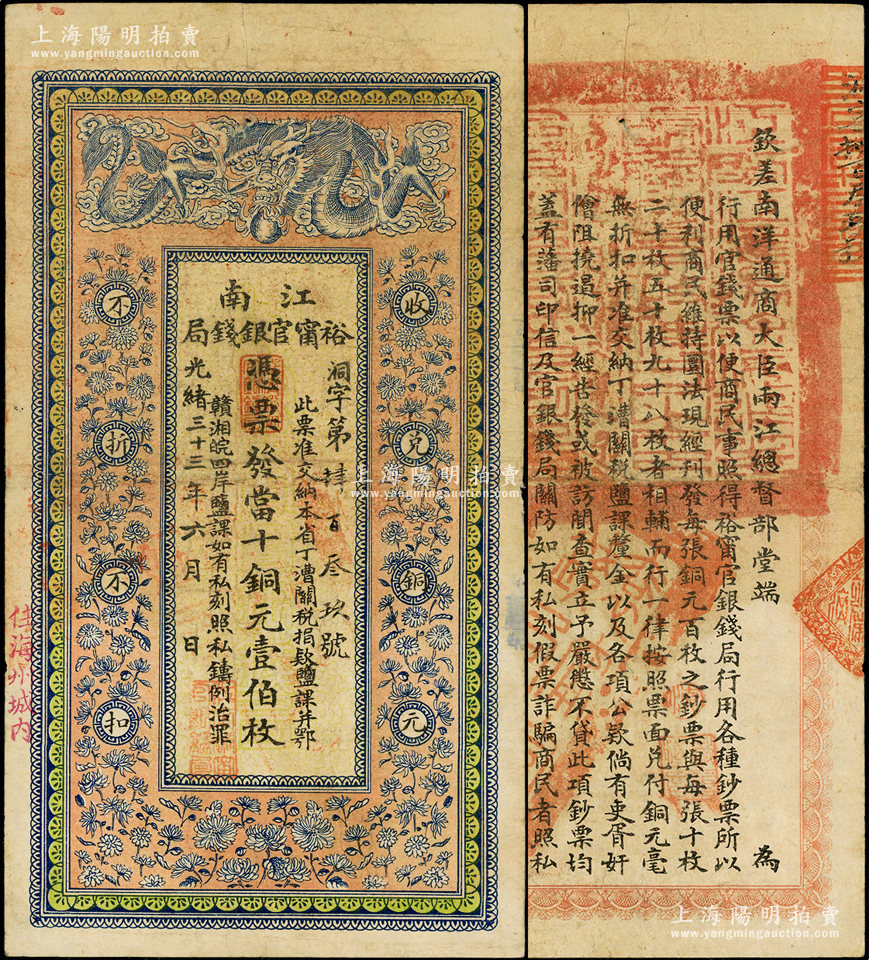 上海陽明拍賣
www.yangmingauction.com
江南
裕甯官銀錢局
收兌銅元
不折不扣
洞字第肆百叁玖號
此票准交納本省丁漕關稅捐欵鹽課并鄂
憑票發當十銅元壹伯枚
贛湘皖四岸鹽課如有私刻照私鑄例治罪
光緒三十三年六月 日
住海州城内
上海陽明拍賣
www.yangmingauction.com
欽差南洋通商大臣兩江總督部堂端 為
行用官錢票以便商民事照得裕甯官銀錢局行用各種鈔票所以
便利商民維持圜法現經刊發每張銅元百枚之鈔票與每張十枚
二十枚五十枚九十八枚者相輔而行一律按照票面兌付銅元毫
無折扣并准交納丁漕關稅鹽課釐金以及各項公欵倘有吏胥奸
儈阻撓遏抑一經告發或被訪聞查實立予嚴懲不貸此項鈔票均
蓋有藩司印信及官銀錢局關防如有私刻假票詐騙商民者照私
上海陽明拍賣
www.yangmingauction.com